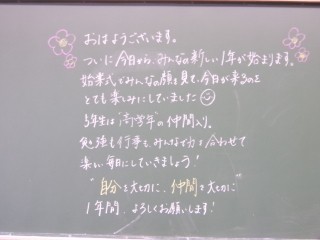 おはようございます。
ついに今日から、みんなの新しい1年が始まります。
始業式でみんなの顔を見て、今日が来るのを
とても楽しみにしていました
5年生は"高学年"の仲間入り。
勉強も行事も、みんなで力を合わせて
楽しい毎日にしていきましょう!
"自分を大切に、仲間を大切に"
1年間、よろしくお願いします!